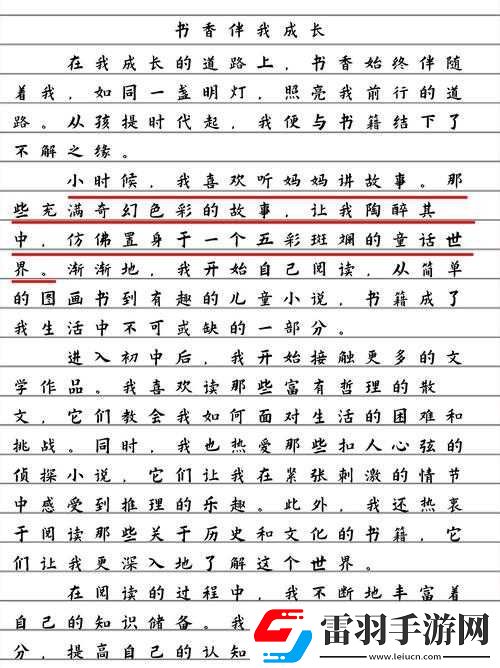 书香伴我成长
在我成长的道路上，书香始终伴随
着我，如同一盏明灯，照亮我前行的道
路。从孩提时代起，我便与书籍结下了
不解之缘。
小时候，我喜欢听妈妈讲故事。那
些充满奇幻色彩的故事，让我陶醉其
中，仿佛置身于一个五彩斑斓的童话世
界。渐渐地，我开始自己阅读，从简单
的图画书到有趣的儿童小说，书籍成了
我生活中不可或缺的一部分。
进入初中后，我开始接触更多的文
学作品。我喜欢读那些富有哲理的散
文，它们教会我如何面对生活的困难和
挑战。同时，我也热爱那些扣人心弦的
侦探小说，它们让我在紧张刺激的情节
中感受到推理的乐趣。此外，我还热衷
于阅读那些关于历史和文化的书籍，它
们让我更深入地了解这个世界。
在阅读的过程中，我不断地丰富着
自己的知识储备。我
分，提高自己的认知
雷羽手游网
www.leiucn.com